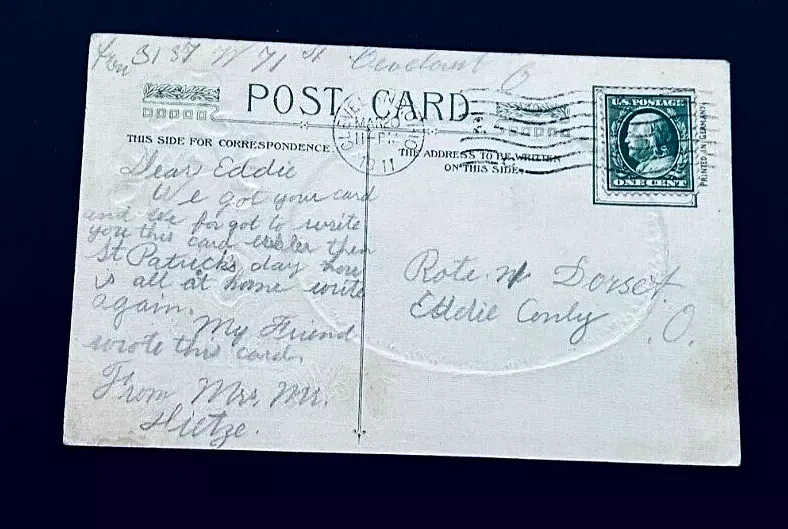 3137 W 71 St Cleveland O
POST CARD
CLEVELAND, OHIO
MAR 20
1911
U.S. POSTAGE
ONE CENT
PRINTED IN GERMANY
THIS SIDE FOR CORRESPONDENCE.
THE ADDRESS TO BE WRITTEN
ON THIS SIDE.
Dear Eddie
We got your card
and we forgot to write
you this card then
St Patrick's day how
is all at home write
again.
My Friend
wrote this card.
From Mrs. Mr.
Hietze.
Rote. Dorset
Eddie Conly
O.